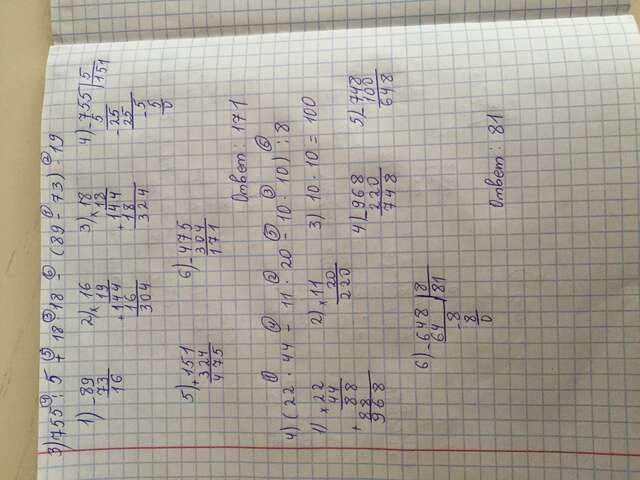 3) 755 : 5 + 18 · 18 - (89 - 73) · 19
1) - 89
73
16
2) x 16
19
+ 144
16
304
3) x 18
18
+ 144
18
324
4) - 755 | 5
5 151
- 25
25
- 5
5
0
5) + 151
324
475
6) - 475
304
171
Ответ: 171
4) (22 · 44 - 11 · 20 - 10 · 10) : 8
1) x 22
44
+ 88
88
968
2) x 11
20
220
3) 10 · 10 = 100
4) - 968
220
748
5) - 748
100
648
6) - 648 | 8
64 81
- 8
8
0
Ответ: 81